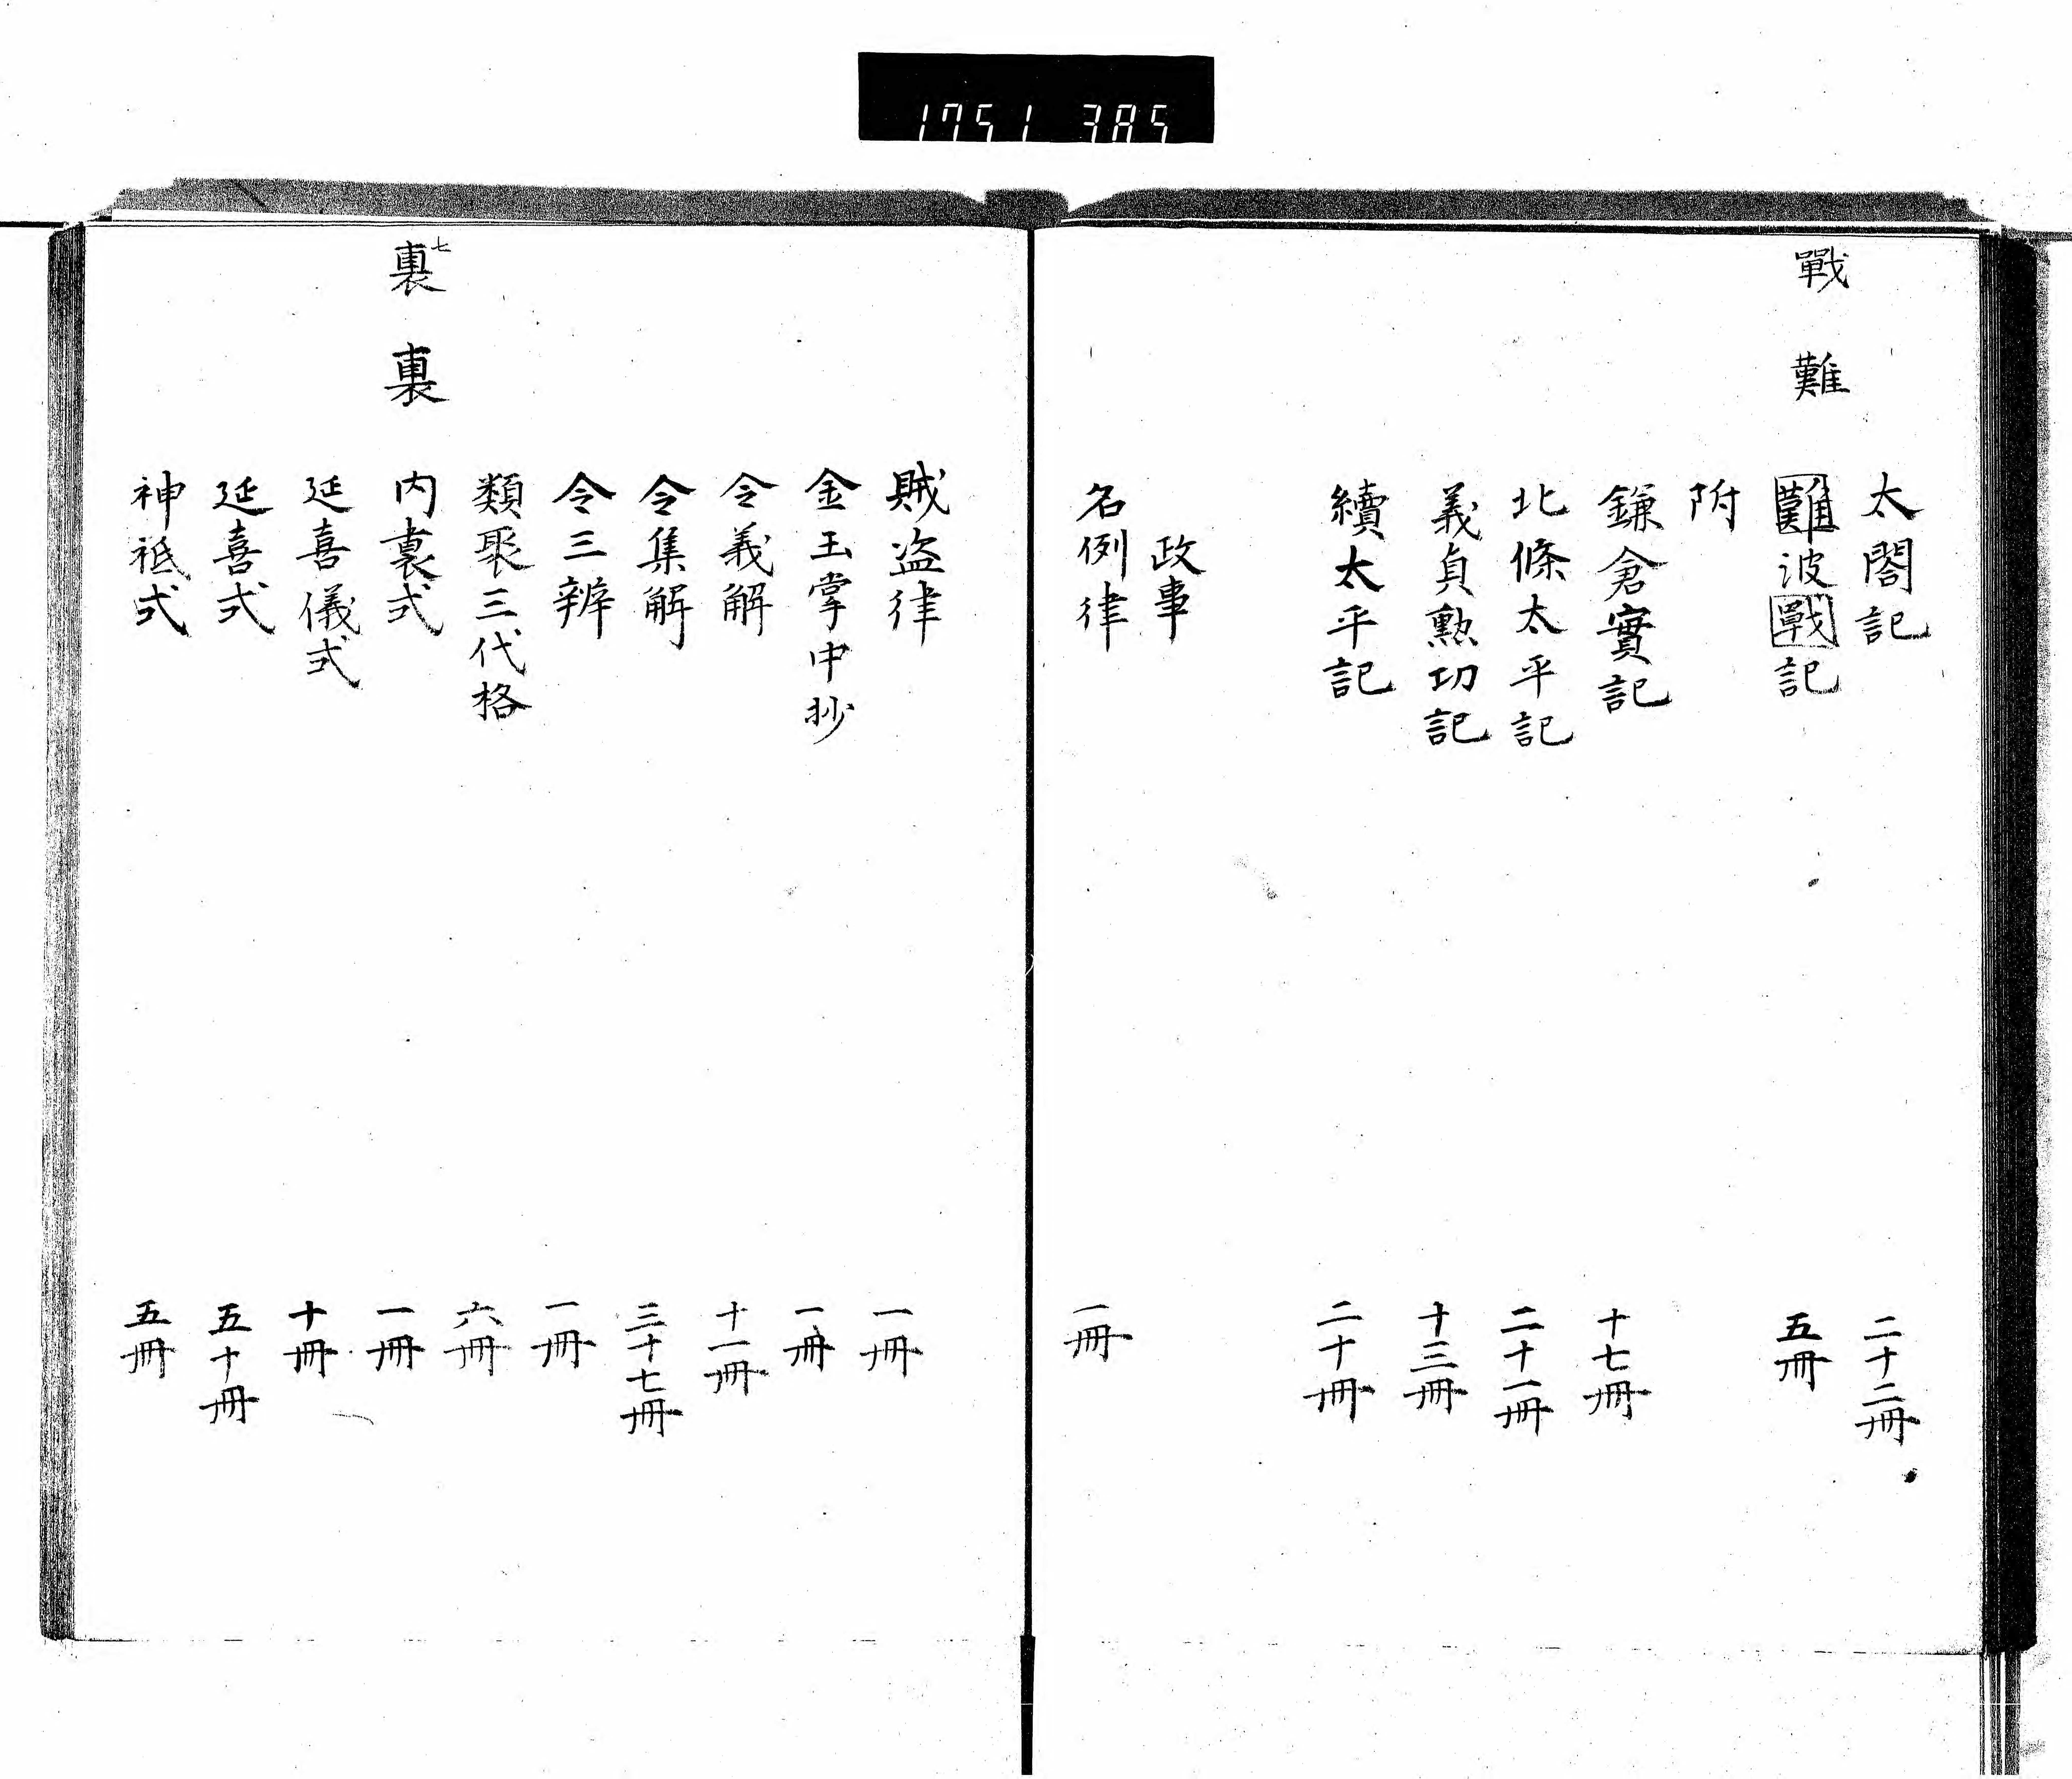 1751 385
戰 難
太閤記 二十二冊
難波戰記 五冊
附
鎌倉實記 十七冊
北條太平記 二十一冊
義貞勲功記 十三冊
續太平記 二十冊
政事
名例律 一冊
賊盗律 一冊
金玉掌中抄 一冊
令義解 十一冊
令集解 三十七冊
令三辨 一冊
類聚三代格 六冊
七
裏 裏
内裏式 一冊
延喜儀式 十冊
延喜式 五十冊
神祗式 五冊